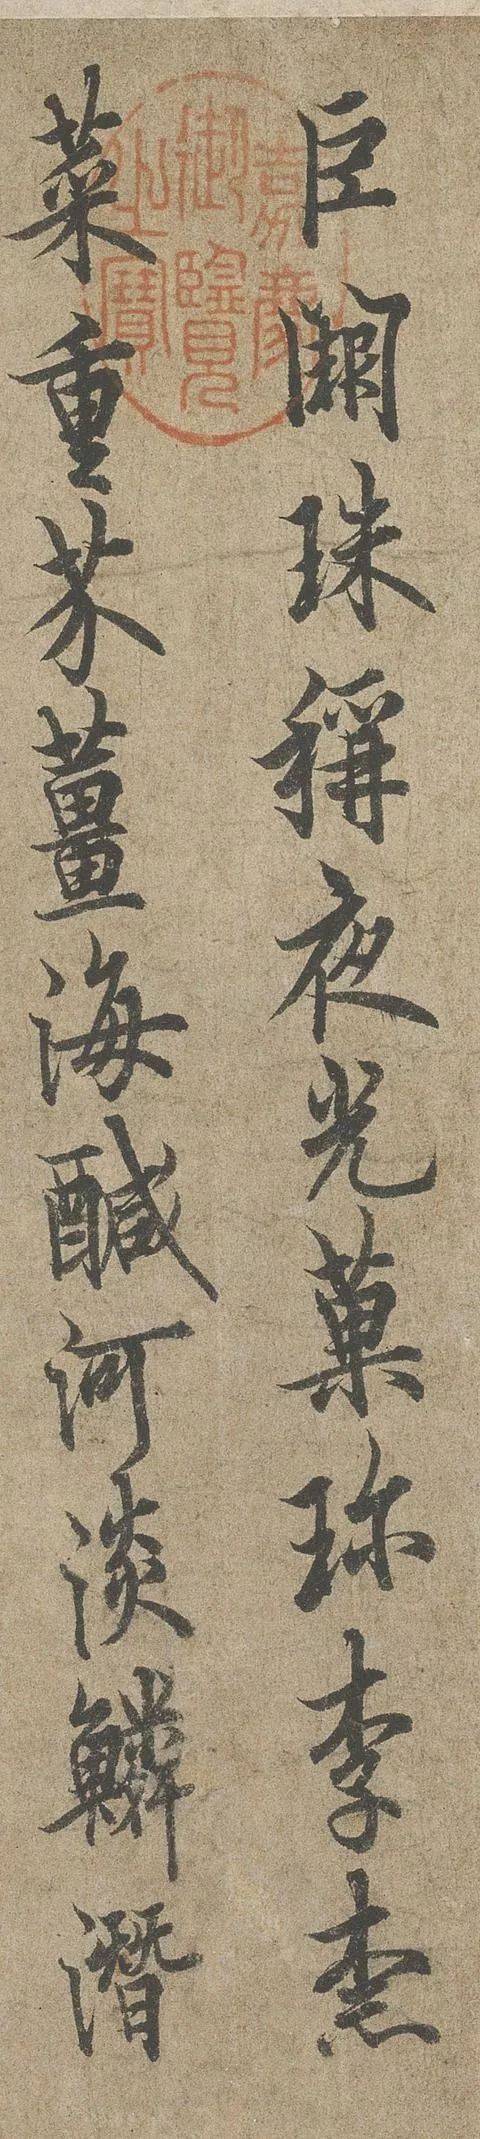 巨闕珠稱夜光菓珎李柰
菜重芥薑海醎河淡鱗潛
嘉慶
御覽
之寶